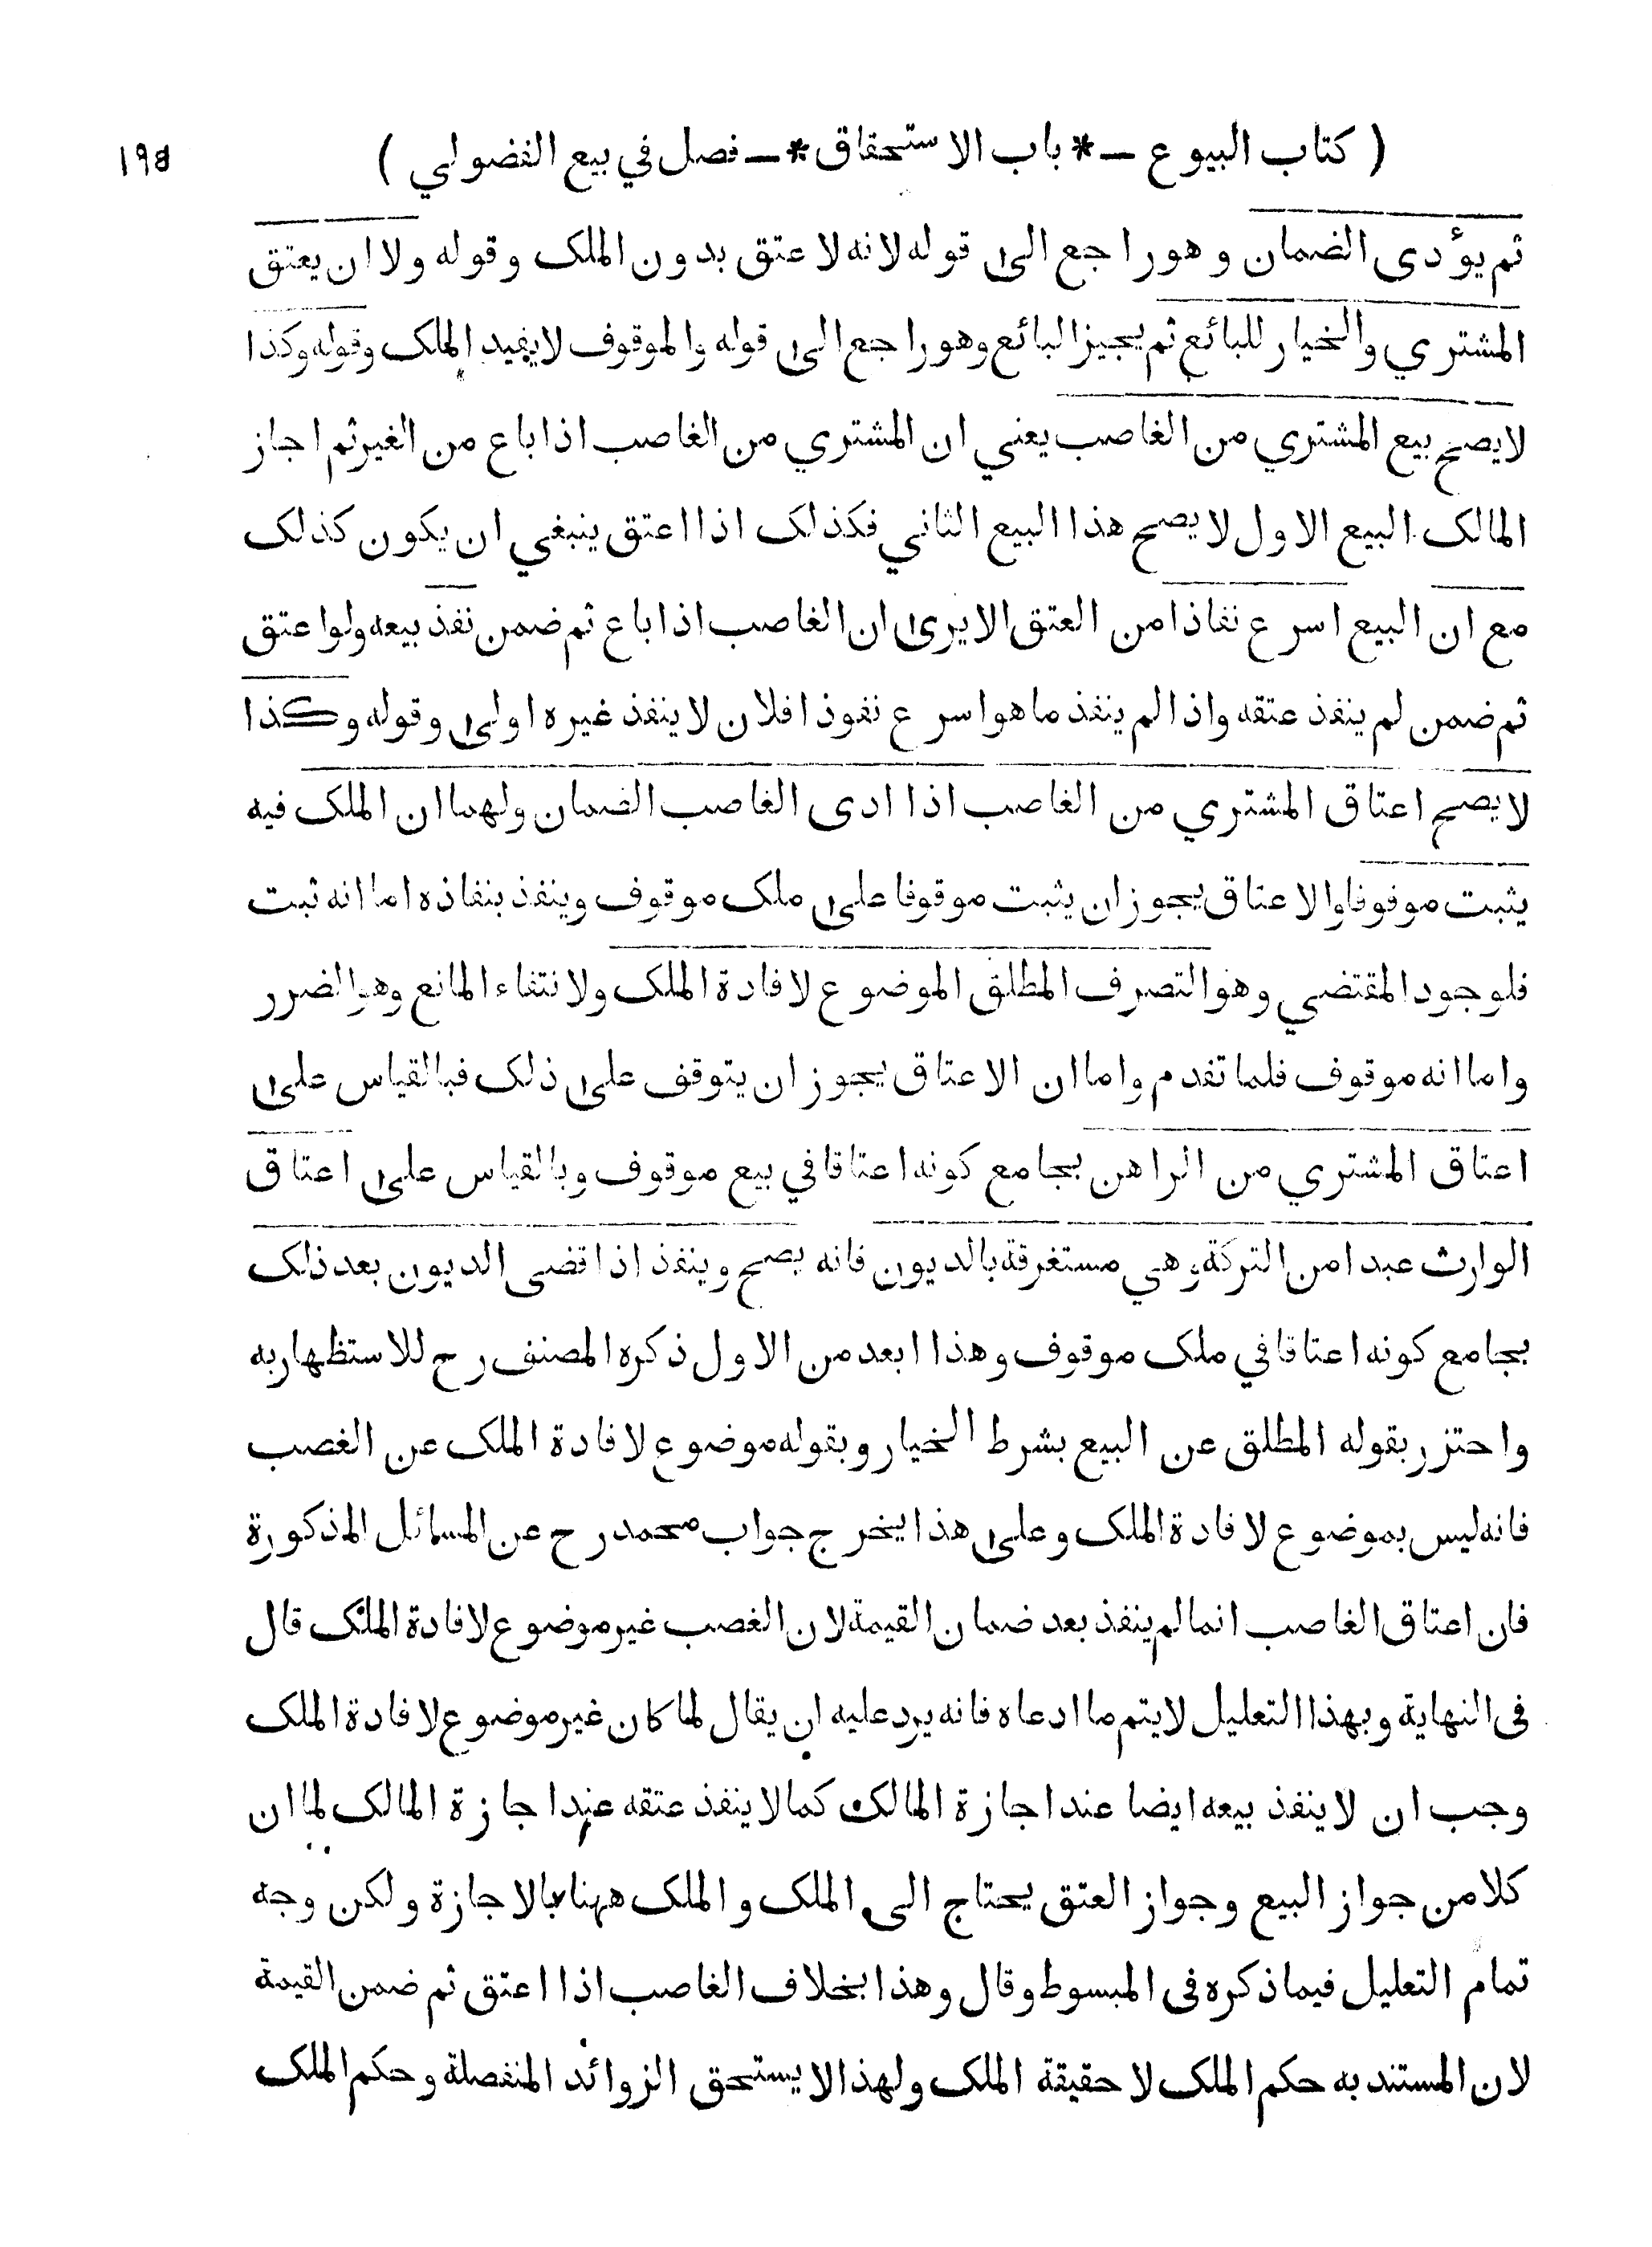 ( كتاب البيوع — * باب الاستحقاق * — فصل في بيع الفضولي ) ١٩٥
ثم يؤدى الضمان وهو راجع الى قوله لانه لا عتق بدون الملك وقوله ولا ان يعتق
المشتري والخيار للبائع ثم يجيز البائع وهو راجع الى قوله والموقوف لا يفيد الملك وقوله وكذا
لا يصح بيع المشتري من الغاصب يعني ان المشتري من الغاصب اذا باع من الغير ثم اجاز
المالك البيع الاول لا يصح هذا البيع الثاني فكذلك اذا اعتق ينبغي ان يكون كذلك
مع ان البيع اسرع نفاذا من العتق الا يرى ان الغاصب اذا باع ثم ضمن نفذ بيعه ولو اعتق
ثم ضمن لم ينفذ عتقه واذا لم ينفذ ما هو اسرع نفوذا فلان لا ينفذ غيره اولى وقوله وكذا
لا يصح اعتاق المشتري من الغاصب اذا ادى الغاصب الضمان ولهما ان الملك فيه
يثبت موقوفا والاعتاق يجوز ان يثبت موقوفا على ملك موقوف وينفذ بنفاذه اما انه ثبت
فلوجود المقتضي وهو التصرف المطلق الموضوع لافادة الملك ولانتفاء المانع وهو الضرر
واما انه موقوف فلما تقدم واما ان الاعتاق يجوز ان يتوقف على ذلك فبالقياس على
اعتاق المشتري من الراهن بجامع كونه اعتاقا في بيع موقوف وبالقياس على اعتاق
الوارث عبدا من التركة وهي مستغرقة بالديون فانه يصح وينفذ اذا قضى الديون بعد ذلك
بجامع كونه اعتاقا في ملك موقوف وهذا ابعد من الاول ذكره المصنف رح للاستظهار به
واحترز بقوله المطلق عن البيع بشرط الخيار وبقوله موضوع لافادة الملك عن الغصب
فانه ليس بموضوع لافادة الملك وعلى هذا يخرج جواب محمد رح عن المسائل المذكورة
فان اعتاق الغاصب انما لم ينفذ بعد ضمان القيمة لان الغصب غير موضوع لافادة الملك قال
فى النهاية وبهذا التعليل لا يتم ما ادعاه فانه يرد عليه ان يقال لما كان غير موضوع لافادة الملك
وجب ان لا ينفذ بيعه ايضا عند اجازة المالك كما لا ينفذ عتقه عند اجازة المالك لما ان
كلا من جواز البيع وجواز العتق يحتاج الى الملك والملك ههنا بالاجازة ولكن وجه
تمام التعليل فيما ذكره فى المبسوط وقال وهذا بخلاف الغاصب اذا اعتق ثم ضمن القيمة
لان المستند به حكم الملك لا حقيقة الملك ولهذا لا يستحق الزوائد المنفصلة وحكم الملك